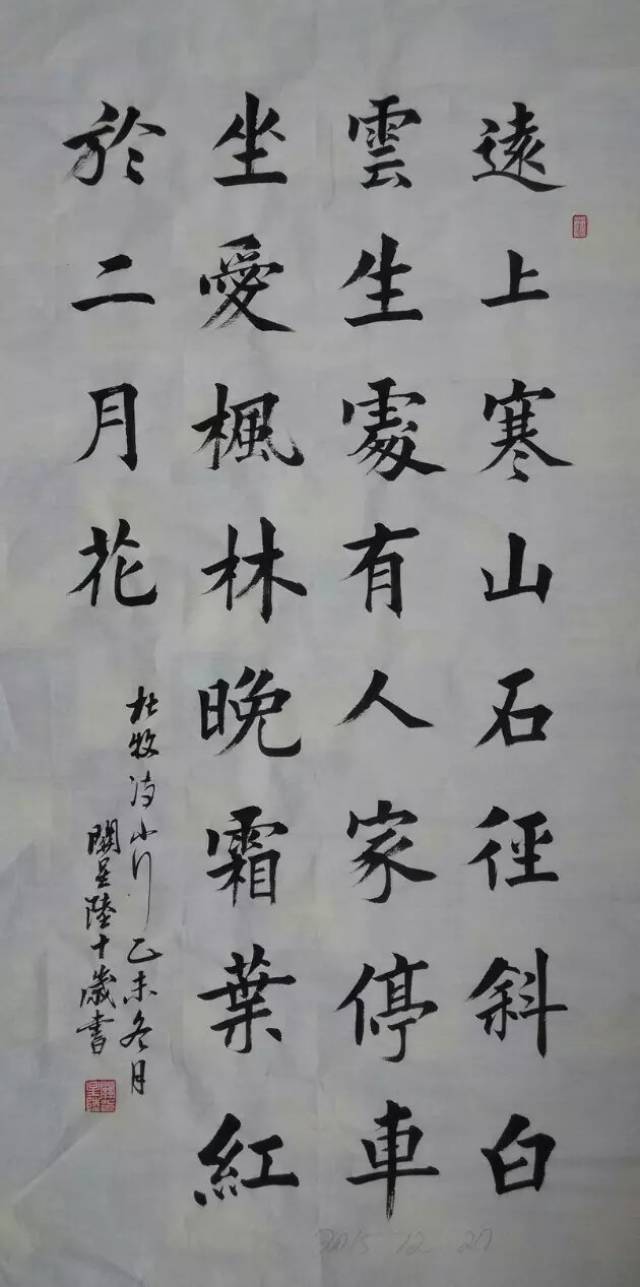 遠上寒山石徑斜白
雲生處有人家停車
坐愛楓林晚霜葉紅
於二月花
杜牧诗山行乙未冬月
關星陸十歲書
2015 12 27